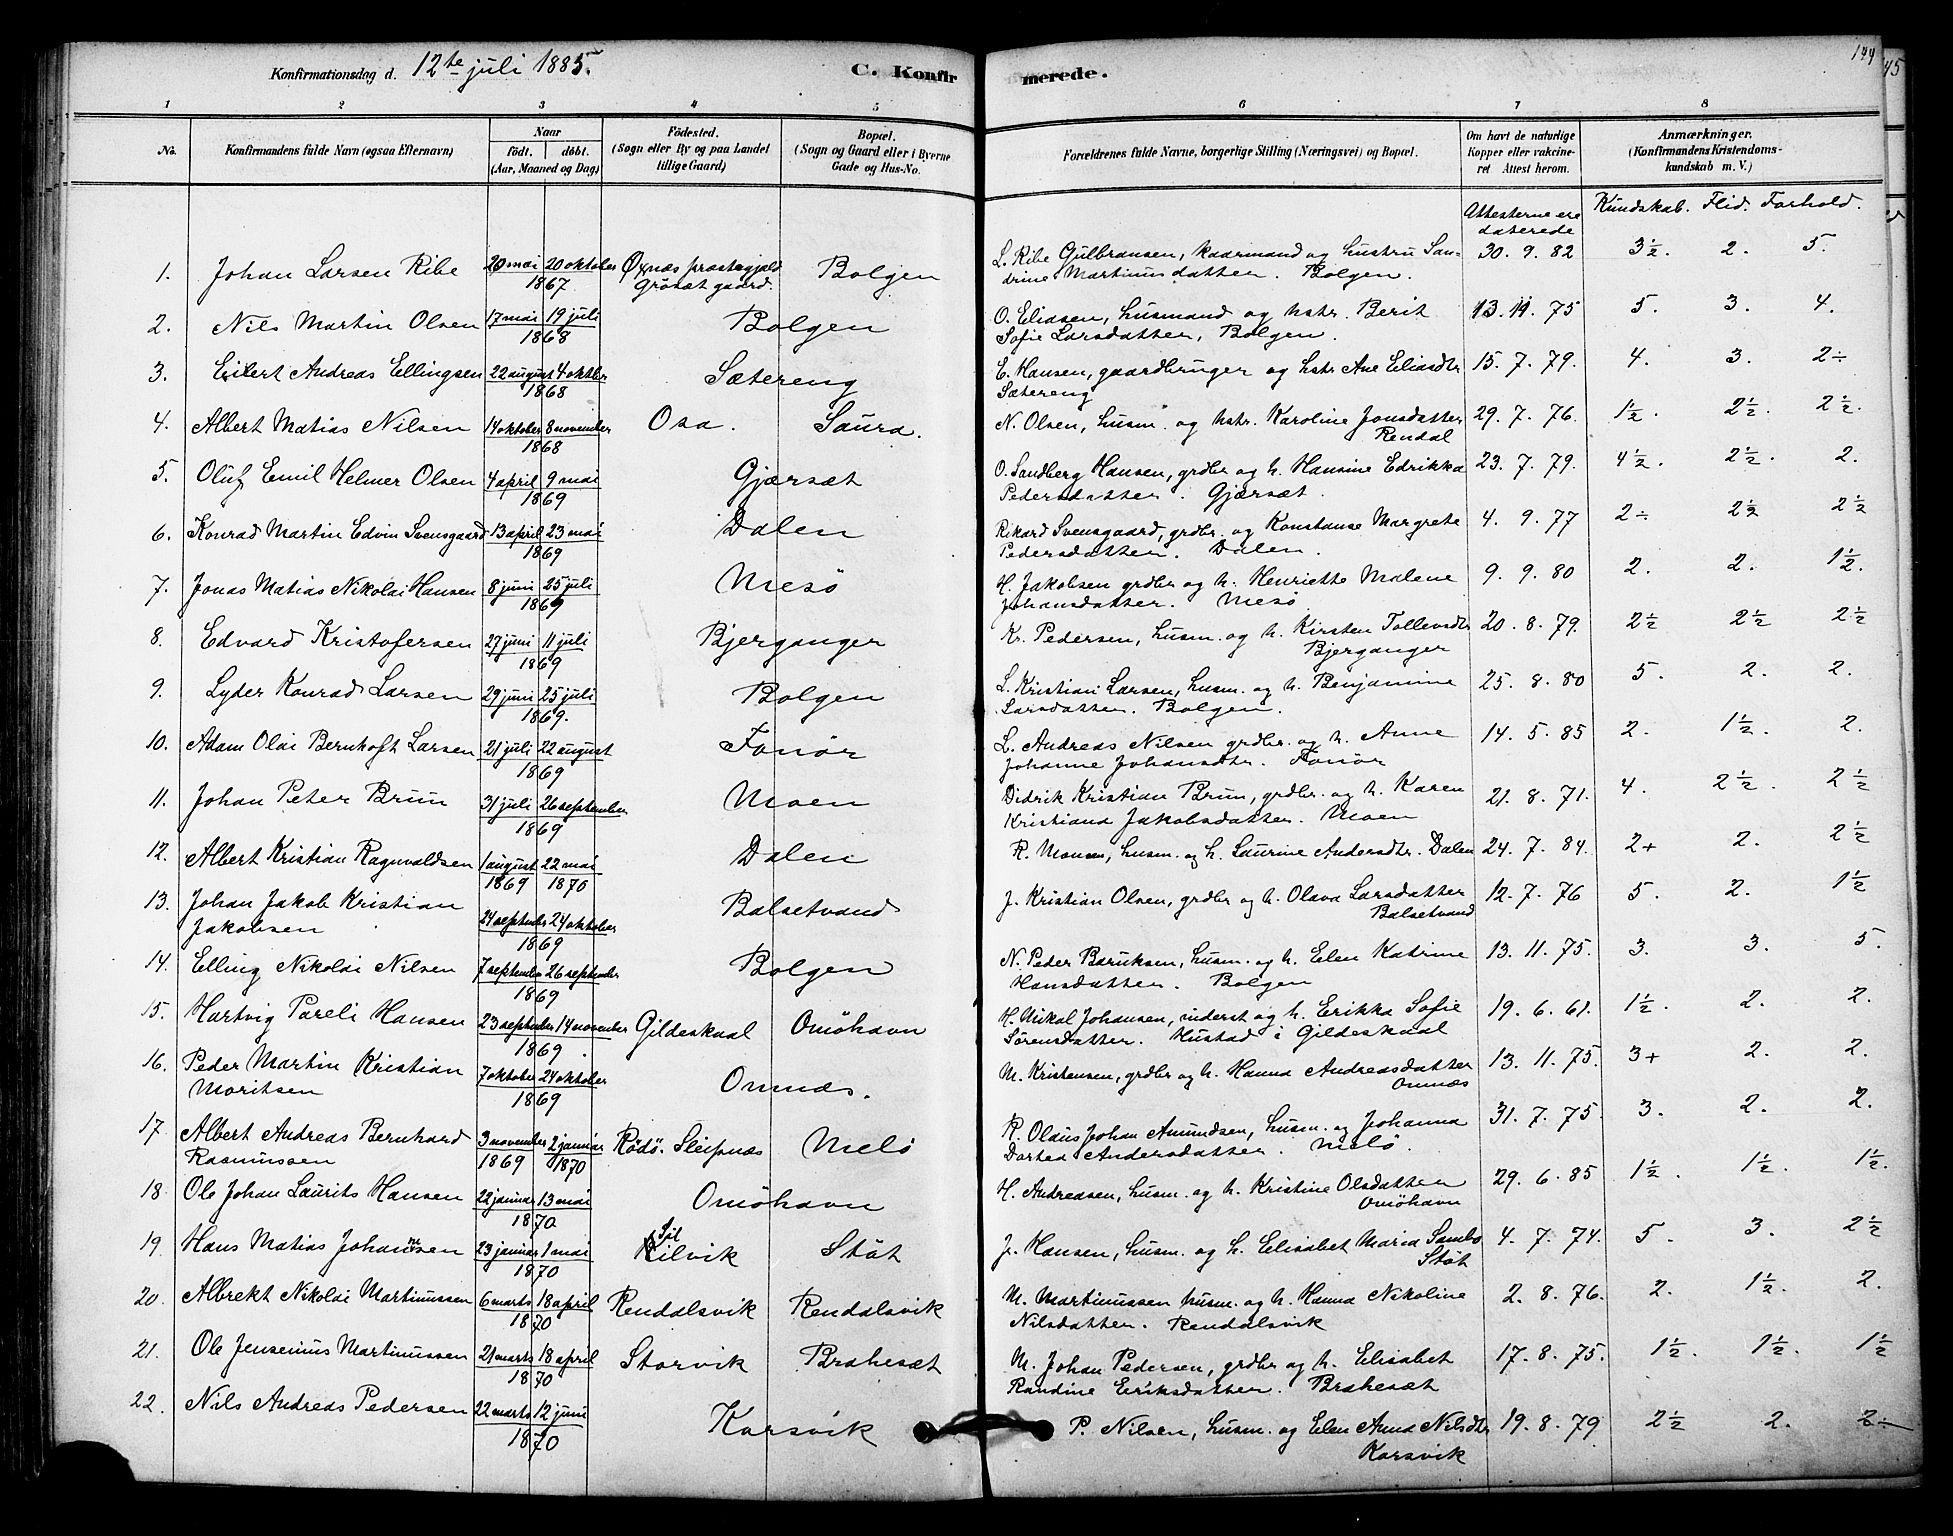 Konfirmationsdag d. 12te juli 1885.
C. Konfirmerede.
144
45
1 2 3 4 5 6 7 8
No. Konfirmandens fulde Navn (øgsaa Efternavn) Naar födt. döbt. (Aar, Maaned og Dag) Födested. (Sogn eller By og paa Landet tillige Gaard) Bopæl. (Sogn og Gaard eller i Byerne Gade og Hus-No. Forældrenes fulde Navne, borgerlige Stilling (Næringsvei) og Bopæl. Om havt de naturlige Kopper eller vakcineret Attest herom. Anmærkninger. (Konfirmandens Kristendomskundskab m. V.)
Attesterne ere daterede Kundskab. Flid. Forhold.
1. Johan Larsen Ribe 20 mai 20 oktober 1867 Øxnæs præstegjæld Grosæt gaard. Bolgen L. Ribe Gulbransen, kaarmand og hustru Sandrine Martinusdatter. Bolgen. 30. 9. 82 3½. 2. 5.
2. Nils Martin Olsen 17 mai 19 juli 1868 Bolgen O. Eliasen, husmand og hstr. Berit Sofie Larsdatter, Bolgen. 13. 11. 75 5. 3. 4.
3. Eilert Andreas Ellingsen 22 august 4 oktber 1868 Sætereng E. Hansen, gaardbruger og hstr Ane Eliasdtr Sætereng 15. 7. 79. 4. 3. 2÷
4. Albert Matias Nilsen 14 oktober 8 november 1868 Osa. Saura. N. Olsen, husm. og hstr. Karoline Jonsdatter Rendal 29. 7. 76. 1½. 2½. 2½.
5. Oluf Emil Helmer Olsen 4 april 9 mai 1869 Gjærsæt O. Sandberg Hansen, grdbr og h. Hansine Edrikka Pedersdatter. Gjærsæt. 23. 7. 79. 4½. 2½. 2.
6. Konrad Martin Edvin Svensgaard 13 april 23 mai 1869 Dalen Rikard Svensgaard, grdbr. og Konstanse Margrete Pedersdatter. Dalen. 4. 9. 77 2÷ 2½ 2½
7. Jonas Matias Nikolai Hansen 8 juni 25 juli 1869 Mesö H. Jakobsen grdbr og h. Henriette Malene Johansdatter. Mesö 9. 9. 80 2. 2. 1½.
8. Edvard Kristofersen 27 juni 11 juli 1869 Bjerganger Kr. Pedersen, husm. og h. Kirsten Tollevsdtr Bjerganger 20. 8. 79. 2½ 2½ 2½
9. Lyder Konrad Larsen 29 juni 25 juli 1869. Bolgen L. Kristian Larsen, husm. og h. Benjamine Larsdatter. Bolgen. 25. 8. 80 5. 2. 2.
10. Adam Olai Bernhoft Larsen 21 juli 22 august 1869 Fonör L. Andreas Nilsen grdbr. og h. Anne Johanne Johansdtr. Fonör 14. 5. 85 2. 1½. 2.
11. Johan Peter Brun 31 juli 26 september 1869 Moen Didrik Kristian Brun, grdbr. og h. Karen Kristiana Jakobsdatter. Moen 21. 8. 71. 4. 2½. 2½
12. Albert Kristian Ragnvaldsen 1 august 1869 22 mai 1870 Dalen R. Monsen, husm. og h. Laurine Andersdtr. Dalen 24. 7. 84. 2+ 2. 2½
13. Johan Jakob Kristian Jakobsen 24 september 24 oktober 1869 Balsetvand J. Kristian Olsen, grdbr og h. Olava Larsdatter Balsetvand 12. 7. 76 5. 2. 1½
14. Elling Nikolai Nilsen 7 september 26 september 1869 Bolgen N. Peder Baruksen, husm. og h. Elen Katrine Hansdatter. Bolgen 13. 11. 75. 3. 3. 5.
15. Hartvig Pareli Hansen 23 september 14 november 1869. Gildeskaal Omöhavn H. Mikal Johansen, inderst og h. Erikka Sofie Sörensdatter. Hustad i Gildeskaal 19. 6. 61. 1½. 2. 2.
16. Peder Martin Kristian Moritsen 7 oktober 24 oktober 1869 Omnæs. M. Kristensen, grdbr og h. Hanna Andreasdatter Omnæs 13. 11. 75. 3+ 2. 2.
17. Albert Andreas Bernhard Rasmussen 3 november 1869 2 januar 1870 Rödö. Sleipnæs Melö R. Olaus Johan Amundsen, husm. og Johanna Dortea Andersdatter. Melö. 31. 7. 75. 3. 2. 2.
18. Ole Johan Laurits Hansen 22 januar 13 mai 1870 Omöhavn H. Andreasen, husm. og h. Kristine Olsdatter Omöhavn 29. 6. 85 1½. 1½. 1½.
19. Hans Matias Johannsen 23 januar 1 mai 1870 Silvik Stöt J. Hansen, husm. og h. Elisabet Maria Sambo Stöt 4. 7. 74. 5. 3. 2½
20. Albrekt Nikolai Martinussen 6 marts 18 april 1870 Rendalsvik Rendalsvik M. Martinussen husm. og h. Hanna Nikoline Nilsdatter. Rendalsvik 2. 8. 76. 2. 1½. 2.
21. Ole Jensenius Martinussen 21 marts 18 april 1870 Storvik Brahesæt M. Johan Pedersen, grdbr og h. Elisabet Randine Eriksdatter. Brahesæt 17. 8. 75. 1½. 1½. 1½
22. Nils Andreas Pedersen 22 marts 12 juni 1870 Korsvik P. Nilsen, husm. og Elen Anna Nilsdtr Korsvik 19. 8. 79. 2½ 2. 2÷